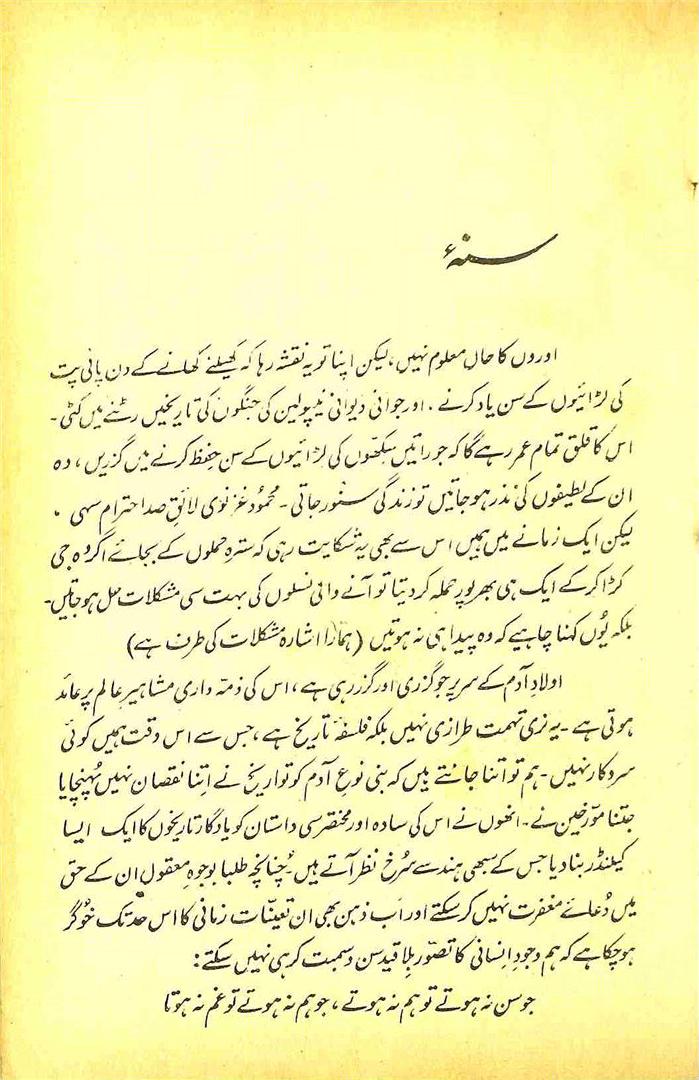 سنہء
اوروں کا حال معلوم نہیں، لیکن اپنا تو یہ نقشہ رہا کہ کھیلنے کھانے کے دن پانی پت
کی لڑائیوں کے سن یاد کرنے، اور جوانی دیوانی نیپولین کی جنگوں کی تاریخیں رٹنے میں کٹی۔
اس کا قلق تمام عمر رہے گا کہ جو راتیں سکھوں کی لڑائیوں کے سن حفظ کرنے میں گزریں، وہ
ان کے لطیفوں کی نذر ہو جاتیں تو زندگی سنور جاتی۔ محمود غزنوی لائقِ صد احترام سہی،
لیکن ایک زمانے میں ہمیں اس سے بھی یہ شکایت رہی کہ سترہ حملوں کے بجائے اگر وہ جی
کڑا کر کے ایک ہی بھرپور حملہ کر دیتا تو آنے والی نسلوں کی بہت سی مشکلات حل ہو جاتیں۔
بلکہ یُوں کہنا چاہیے کہ وہ پیدا ہی نہ ہوتیں (ہمارا اشارہ مشکلات کی طرف ہے)
اولادِ آدم کے سر پر جو گزری اور گزر رہی ہے، اس کی ذمّہ داری مشاہیرِ عالم پر عائد
ہوتی ہے۔ یہ نری تہمت طرازی نہیں بلکہ فلسفۂ تاریخ ہے، جس سے اس وقت ہمیں کوئی
سروکار نہیں۔ ہم تو اتنا جانتے ہیں کہ بنی نوعِ آدم کو تواریخ نے اِتنا نقصان نہیں پہُنچایا
جتنا مورّخین نے۔ انھوں نے اس کی سادہ اور مختصر سی داستان کو یادگار تاریخوں کا ایک ایسا
کیلنڈر بنا دیا جس کے سبھی ہندسے سُرخ نظر آتے ہیں۔ چُنانچہ طلبا بوجوہِ معقول ان کے حق
میں دُعائے مغفرت نہیں کر سکتے اور اَب ذہن بھی ان تعیّنات زمانی کا اس حد تک خُوگر
ہو چکا ہے کہ ہم وجودِ اِنسانی کا تصوّر بِلا قیدِ سن و سمبت کر ہی نہیں سکتے:
جو سن نہ ہوتے تو ہم نہ ہوتے، جو ہم نہ ہوتے تو غم نہ ہوتا